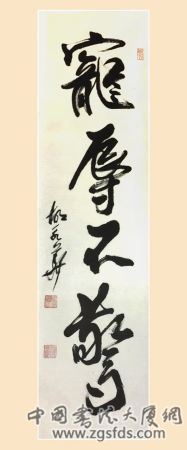 寵辱不驚
中國書法大厦網
www.zgsfds.com